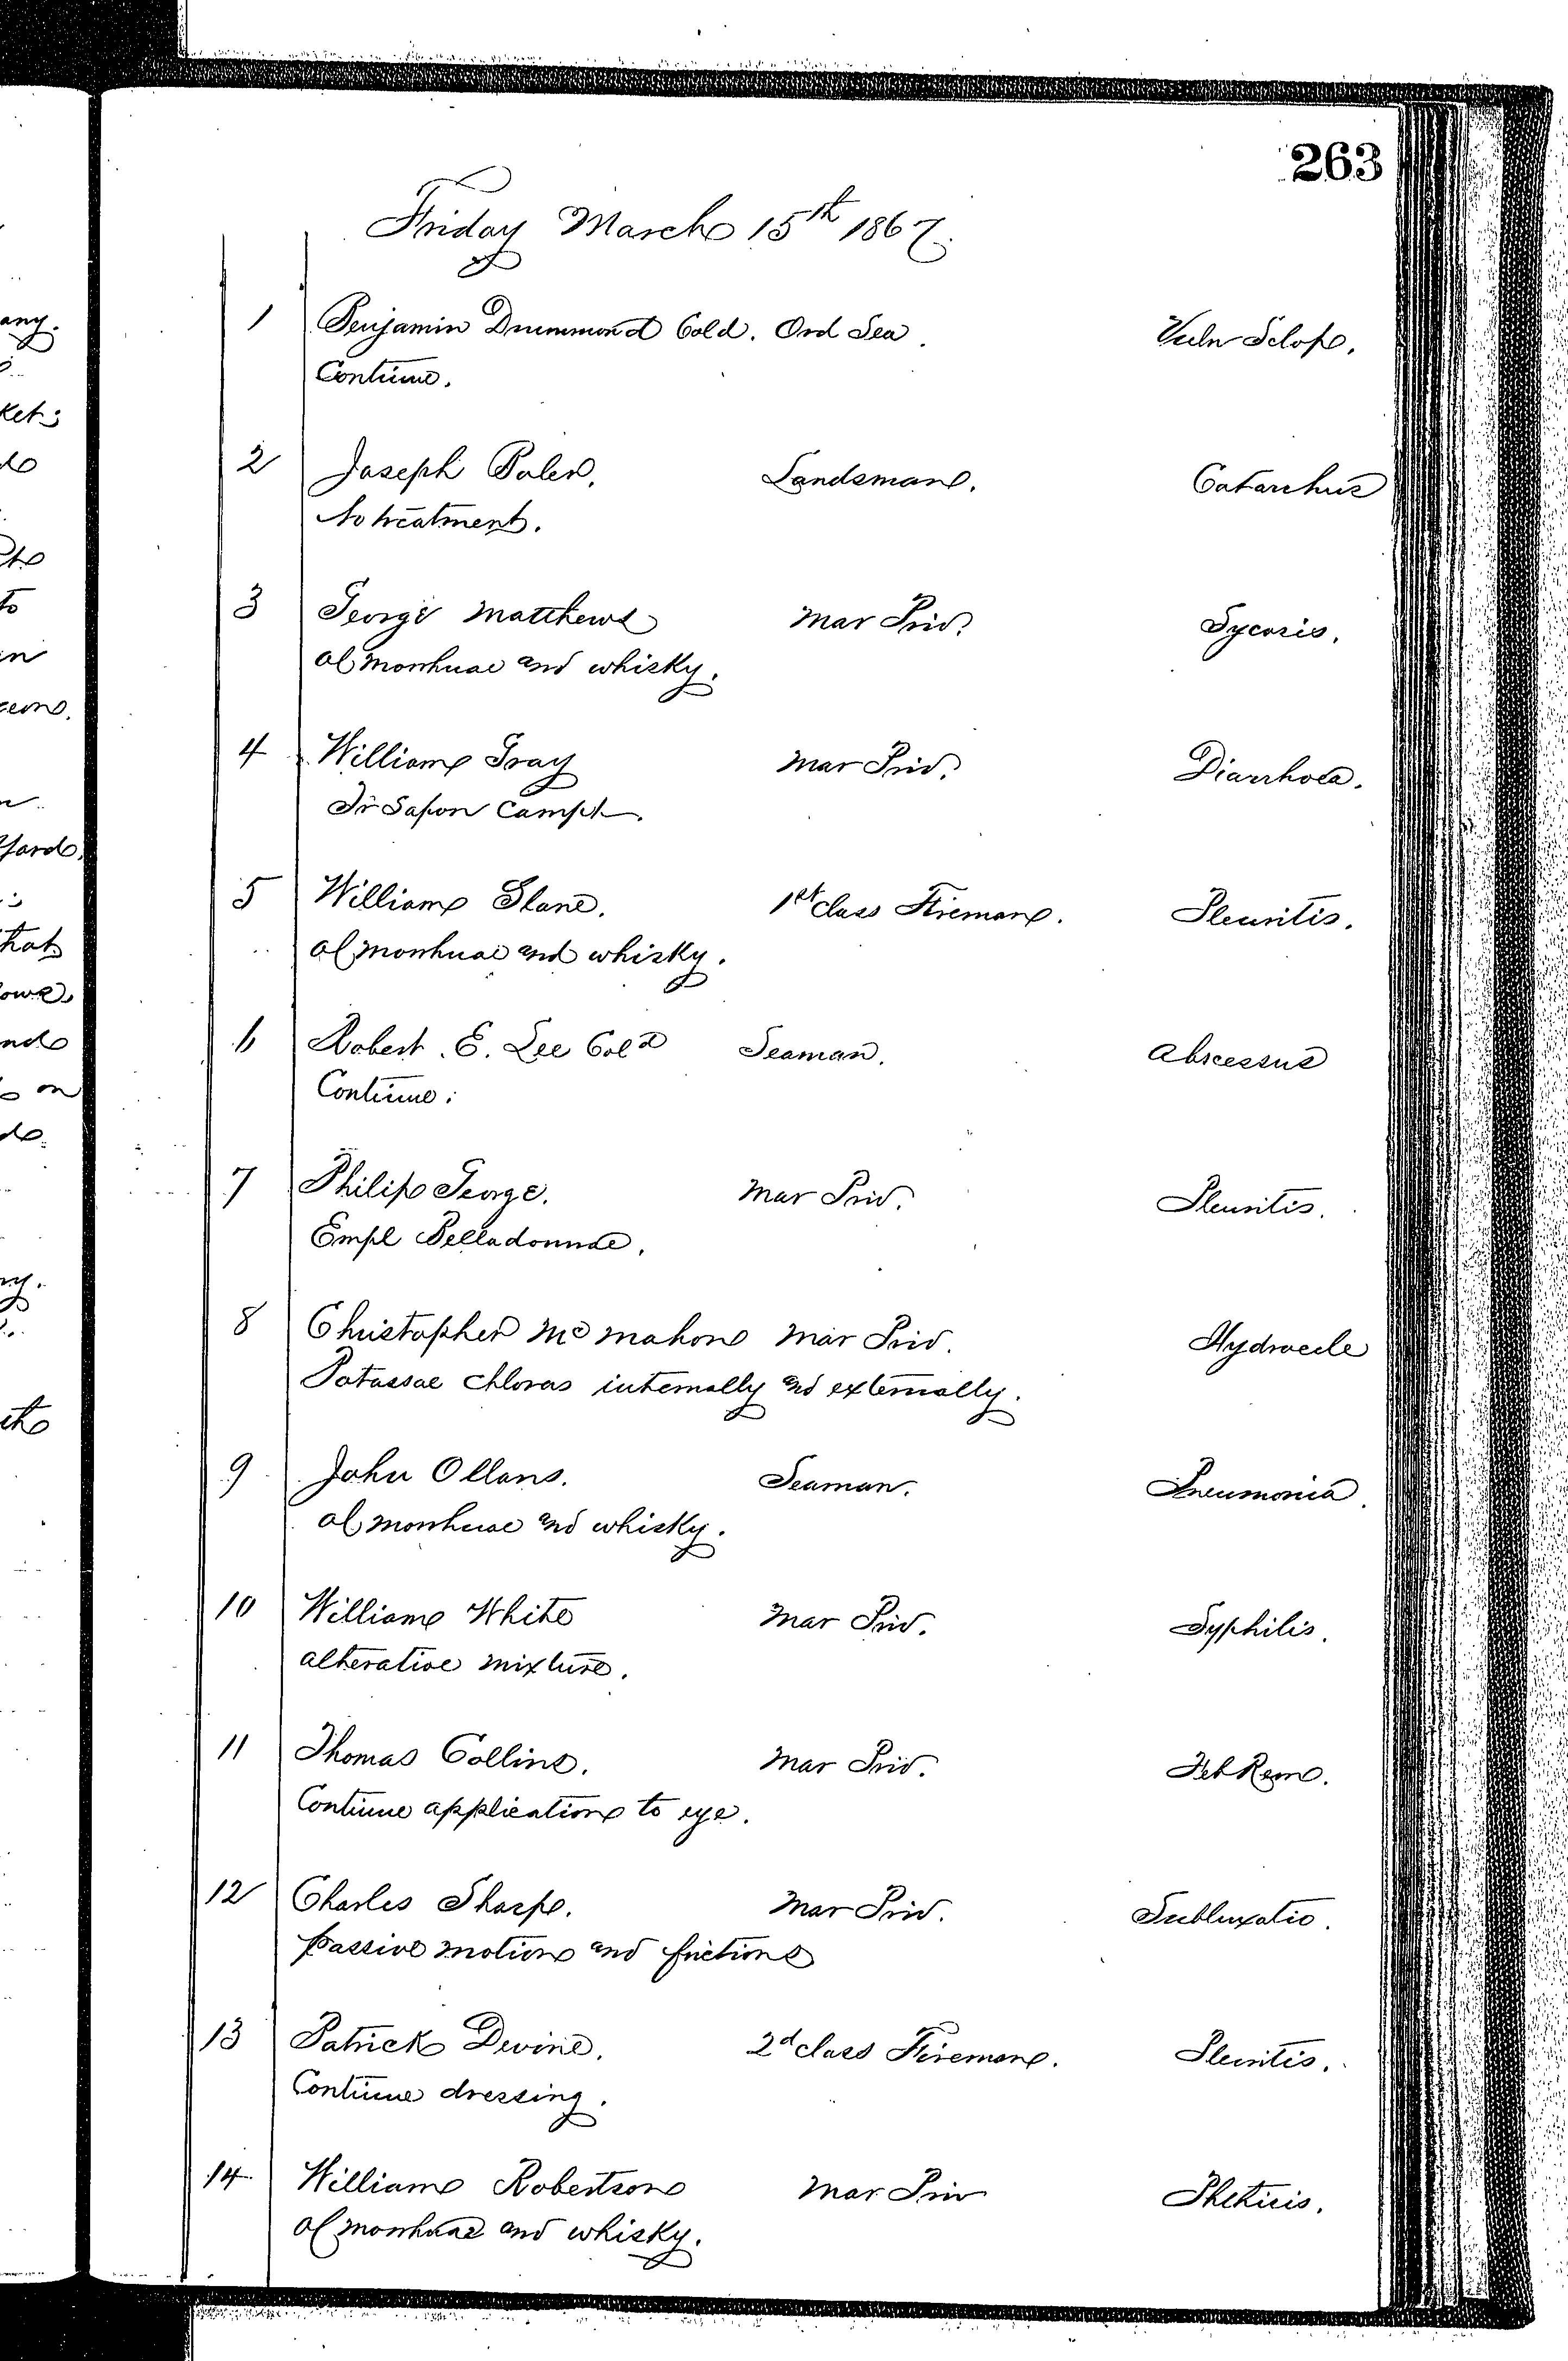 263
Friday March 15th 1867.
1 Benjamin Drummond Cold. Ord Sea. Vuln Sclop.
Continue.
2 Joseph Paler. Landsman. Catarrhus
No treatment.
3 George Matthews Mar Priv. Sycosis.
Ol morrhuae and whisky.
4 William Gray Mar Priv. Diarrhoea.
Tr Sapon Camph.
5 William Slane. 1st class Fireman. Pleuritis.
Ol morrhuae and whisky.
6 Robert E. Lee Cold Seaman. Abscessus
Continue.
7 Philip George. Mar Priv. Pleuritis.
Empl Belladonnae.
8 Christopher McMahon Mar Priv. Hydrocele
Potassae chloras internally and externally.
9 John Ollans. Seaman. Pneumonia.
Ol morrhuae and whisky.
10 William White Mar Priv. Syphilis.
alterative mixture.
11 Thomas Collins. Mar Priv. Feb Rem.
Continue application to eye.
12 Charles Sharp. Mar Priv. Subluxatio.
passive motion and frictions
13 Patrick Devine. 2d class Fireman. Pleuritis.
Continue dressing.
14 William Robertson Mar Priv Phthisis.
Ol morrhuae and whisky.